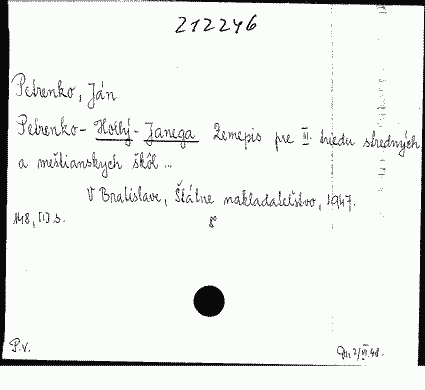 212246
Petrenko, Ján
Petrenko - Hollý - Janega Zemepis pre III. triedu stredných
a meštianskych škôl ...
V Bratislave, Štátne nakladateľstvo, 1947.
148, [1] s. 8°
P.V. 2/VI.48.